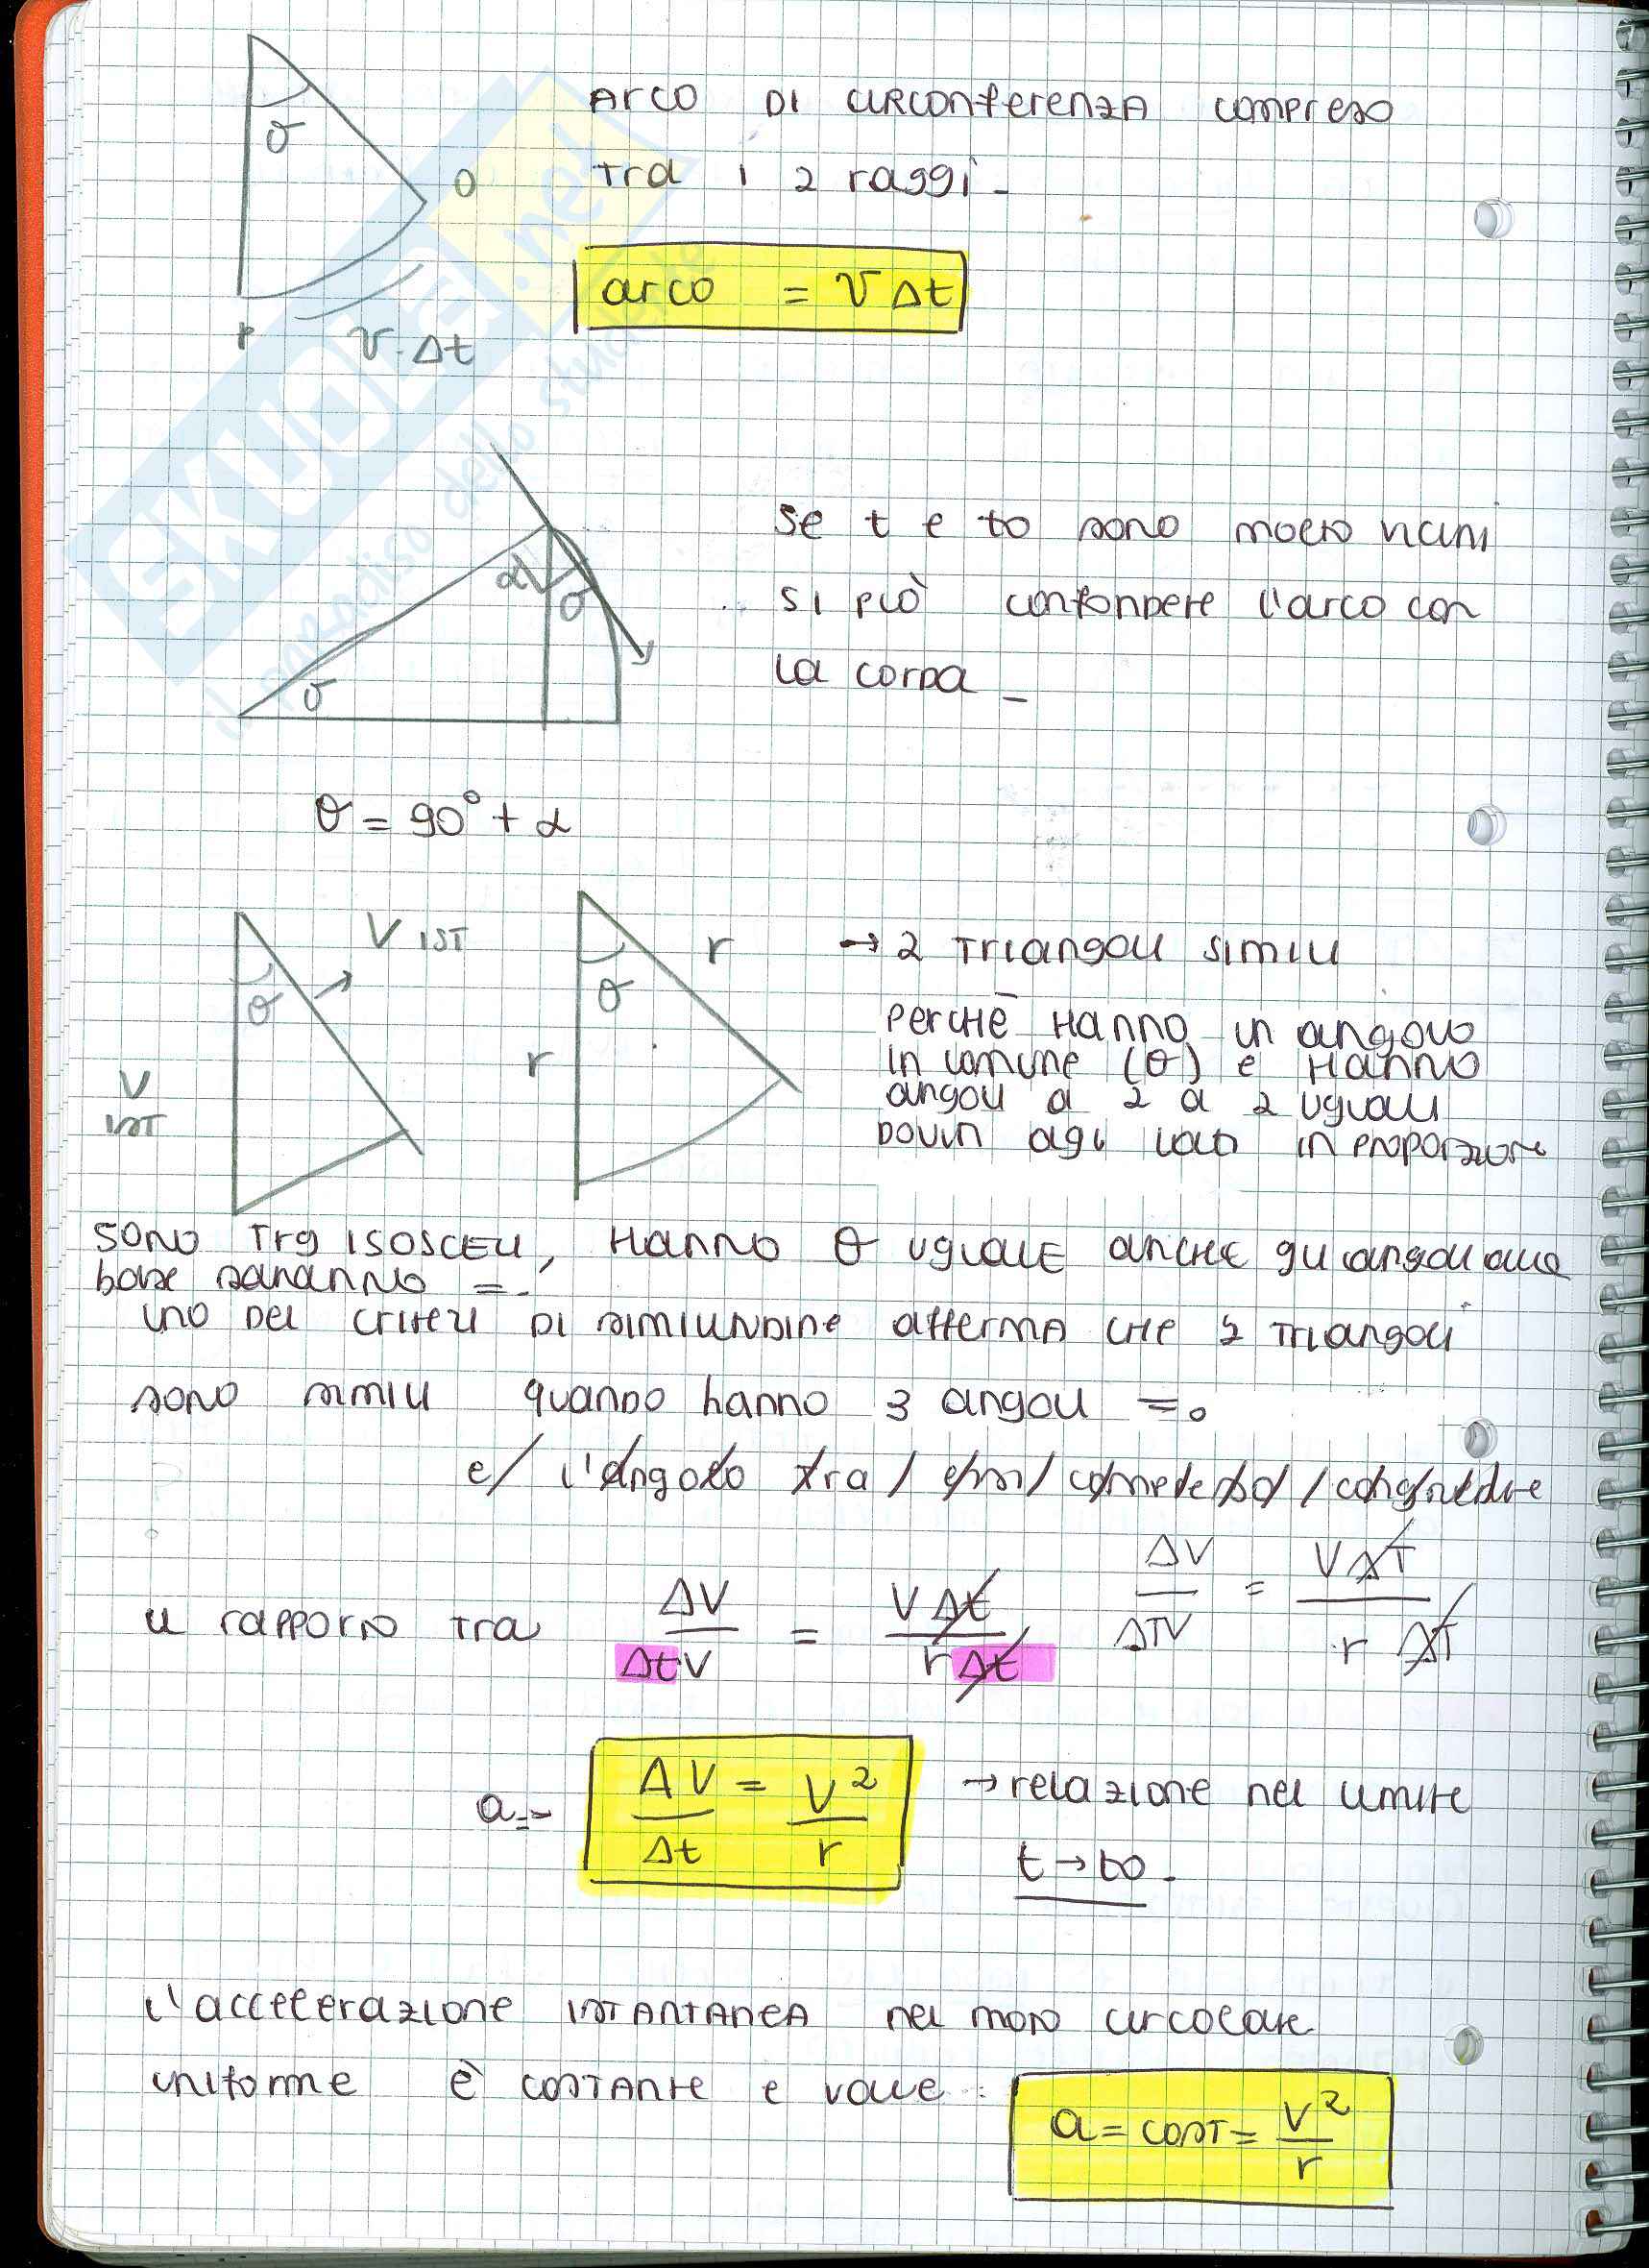 ARCO DI CIRCONFERENZA COMPRESO
TRA I 2 raggi-
θ
O
arco = V Δt
r
V·Δt
SKUOLA.net
il paradiso dello studente
Se t e to sono molto vicini
α
θ
si può confondere l'arco con
la corda -
θ
θ = 90° + α
V IST
r
→ 2 TRIANGOLI SIMILI
θ
θ
PERCHÈ HANNO un angolo
r
in comune (θ) e HANNO
V
IST
angoli a 2 a 2 uguali
in PROPORZIONE
SONO TRG ISOSCELI, HANNO θ UGUALE ANCHE gli angoli alla
base saranno =.
UNO DEI CRITERI DI SIMILITUDINE AFFERMA CHE 2 TRIANGOLI
sono simili quando hanno 3 angoli =.
e l'angolo tra essi compreso congruente
il rapporto tra ΔV/ΔtV = VΔt/rΔt ΔV/ΔTV = VΔT/rΔT
a = ΔV/Δt = V²/r → relazione nel limite
t → to.
l'accelerazione ISTANTANEA nel moto circolare
uniforme è COSTANTE e vale:
a = COST = V²/r